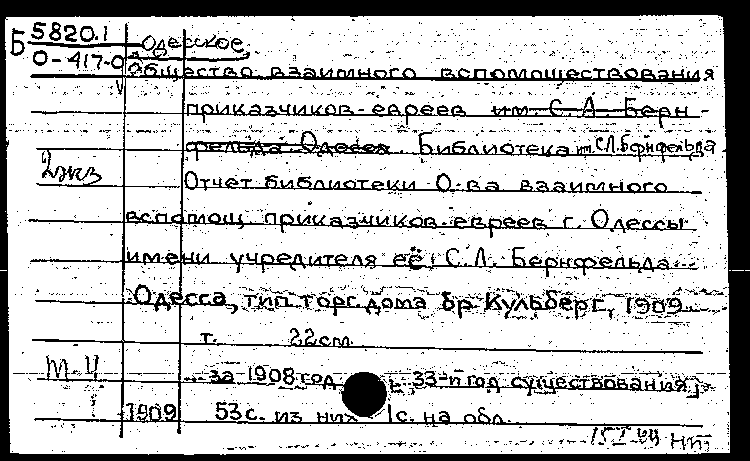 Б 5820.1
О-417-0 Одесское
общество взаимного вспомоществования
приказчиков-евреев им. С. А. Берн-
фельда Одесса. Библиотека им. С.Л. Бернфельда
2 экз
Отчет библиотеки О-ва взаимного
вспомощ. приказчиков-евреев г. Одессы
имени учредителя её, С. Л. Бернфельда...
Одесса, тип. торг. дома бр. Кульберг, 1909
т. 22 см.
... за 1908 год 33-й год существования
1909 53 с. из них 1 с. на обл.
15 I